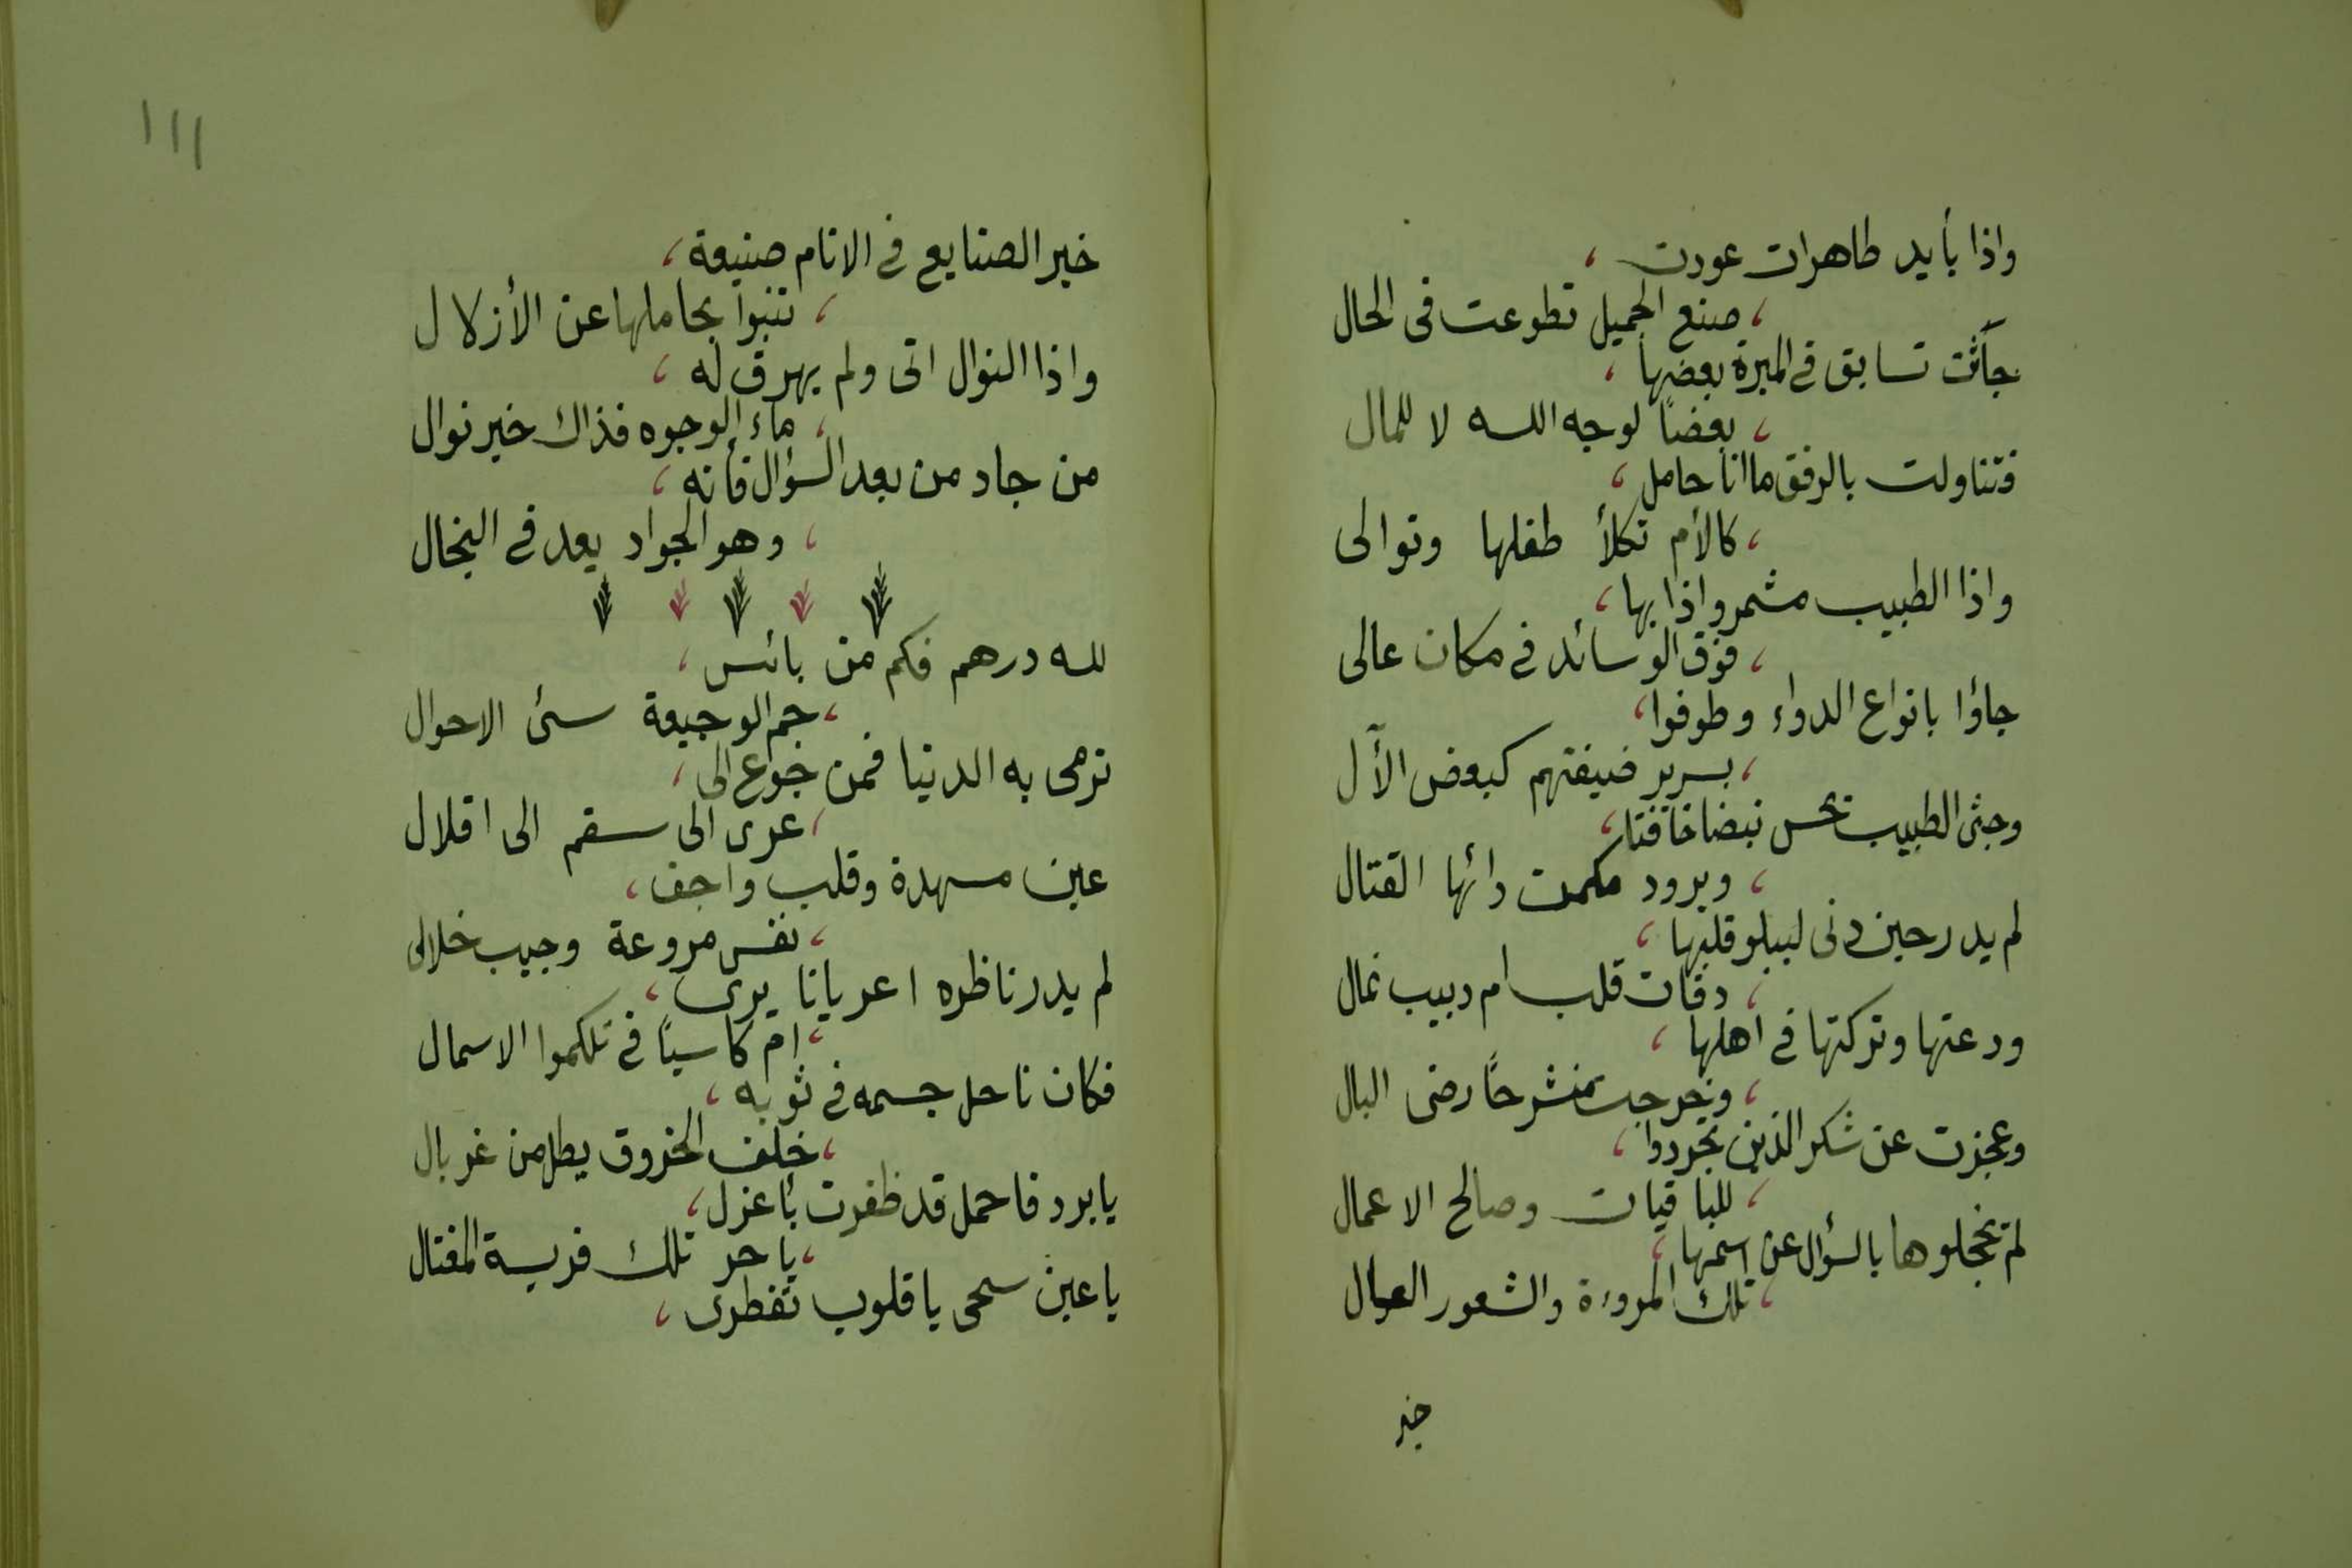 واذا بأيد طاهرات عودت ،
، صنع الجميل تطوعت فى الحال
جآئت تسابق فى المبرة بعضها ،
، بعضاً لوجه الله لا للمال
فتناولت بالرفق ما انا حامل ،
، كالأم تكلأ طفلها وتوالى
واذا الطبيب مشمر واذا بها ،
، فوق الوسائد فى مكان عالى
جاؤا بانواع الدواء وطوفوا ،
، بسرير ضيفتهم كبعض الآل
وجثى الطبيب يحس نبضا خافتا ،
، ويرود مكمن دائها القتال
لم يدر حين دنى ليبلو قلبها ،
، دقات قلب ام دبيب نمال
ودعتها وتركتها فى اهلها ،
، وخرجت منشرحاً رضى البال
وعجزت عن شكر الذين تجردوا ،
، للباقيات وصالح الاعمال
لم تخجلوها بالسؤال عن اسمها ،
، تلك المروءة والشعور العال
خير
١١١
خير الصنايع فى الانام صنيعة ،
، تنبوا بحاملها عن الأزلال
واذا النوال اتى ولم يهرق له ،
، ماء الوجوه فذاك خير نوال
من جاد من بعد السؤال فأنه ،
، وهو الجواد يعد فى البخال
لله درهم فكم من بائس ،
، جم الوجيعة سئ الاحوال
ترمى به الدنيا فمن جوع الى ،
، عرى الى سقم الى اقلال
عين مسهدة وقلب واجف ،
، نفس مروعة وجيب خالى
لم يدر ناظره اعريانا يرى ،
، ام كاسياً فى تلكموا الاسمال
فكان ناحل جسمه فى ثوبه ،
، خلف الخروق يطل من غربال
يا برد فاحمل قد ظفرت بأعزل ،
، يا حر تلك فريسة المغتال
يا عين سحى يا قلوب تفطرى ،